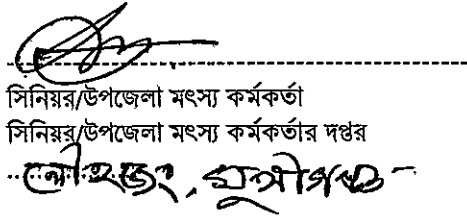 সিনিয়র/উপজেলা মৎস্য কর্মকর্তা
সিনিয়র/উপজেলা মৎস্য কর্মকর্তার দপ্তর
লৌহজং, মুন্সীগঞ্জ